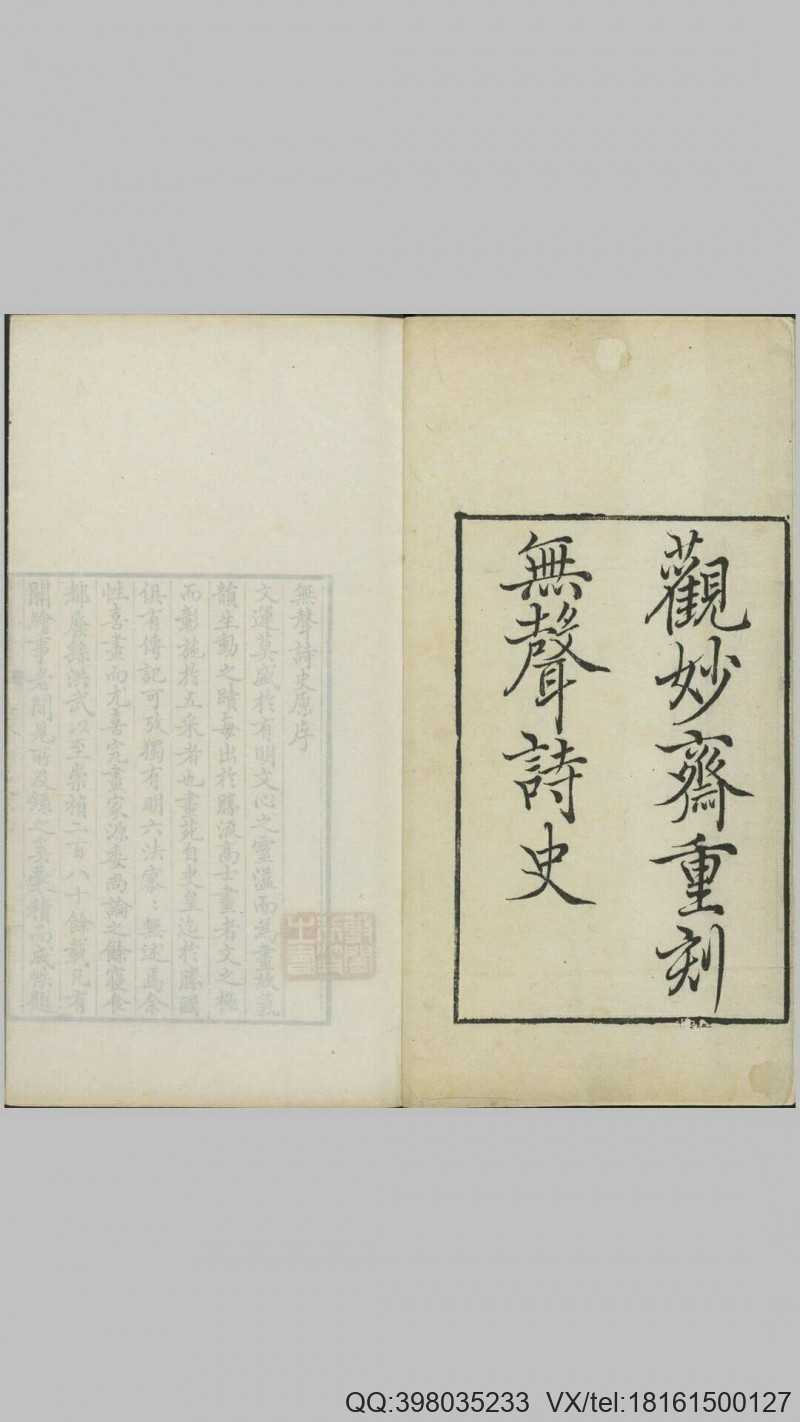 觀妙齋重刻
無聲詩史
無聲詩史原序
文運莫盛於有明文心之靈溢而為畫故氣
韻生動之蹟每出於勝流高士畫者文之極
而彰施於五采者也畫苑自史皇迄於勝國
俱有傳記可攷獨有明六法寥：無述焉余
性喜畫而尤喜究畫家源委尚論之餘寢食
都廢繇洪武以至崇禎二百八十餘載凡有
關繪事者聞見所及錄之積而成
QQ:398035233 VX/tel:18161500127